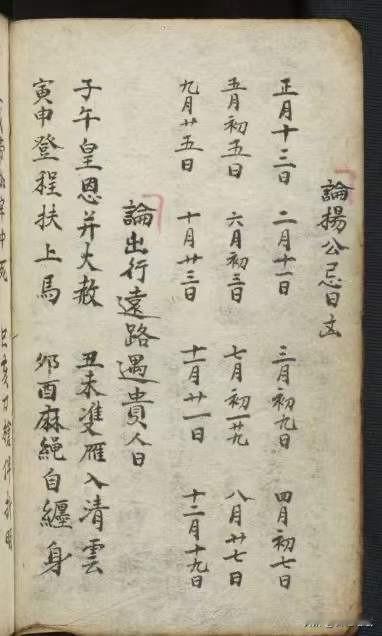 論揚公忌日
正月十三日 二月十一日 三月初九日 四月初七日
五月初五日 六月初三日 七月初一廿九 八月廿七日
九月廿五日 十月廿三日 十一月廿一日 十二月十九日
論出行遠路遇貴人日
子午皇恩并大赦 丑未雙雁入清雲
寅申登程扶上馬 卯酉麻繩自纏身